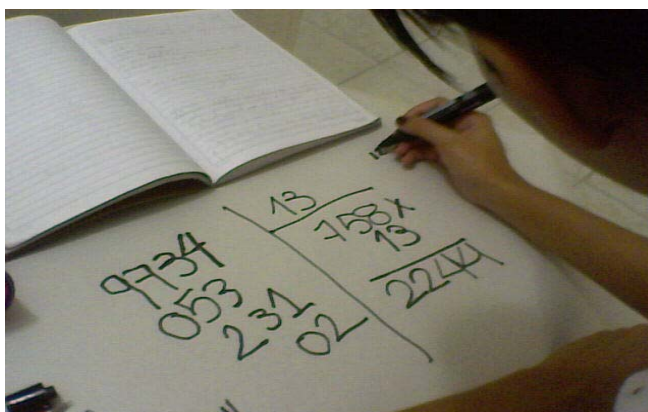 9734
053
231
02
13
758x
13
2244